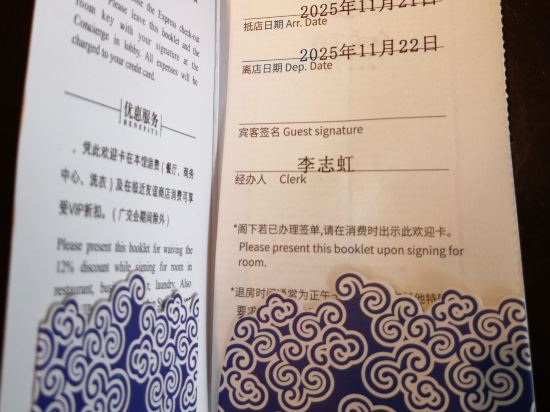 the Express check-out
Please leave this booklet and the
room key with your signature at the
Concierge in lobby. All expenses will be
charged to your credit card.
优惠服务
BENEFITS
凭此欢迎卡在本馆消费(餐厅、商务
中心、洗衣)及在临近友谊商店消费可享
受VIP折扣。(广交会期间除外)
Please present this booklet for waiving the
12% discount while signing for room in
restaurant, laundry. Also
2025年11月21日
抵店日期 Arr. Date
2025年11月22日
离店日期 Dep. Date
宾客签名 Guest signature
李志虹
经办人 Clerk
*阁下若已办理签单,请在消费时出示此欢迎卡。
Please present this booklet upon signing for
room.
*退房时间通常为正午
要求